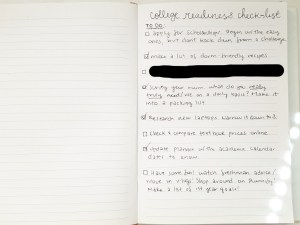 college readiness check-list
TO DO:
□ Apply for scholarships! Begin w/ the easy
ones, but don't back down from a challenge
☑ Make a list of dorm-friendly recipes
□
☑ Survey your room, what do you really
need on a daily basis? Make it
into a packing list
☑ Research new laptops, narrow it down to 3
□ Check & compare textbook prices online
☑ Update planner w/ the academic calendar
□ Have some fun! Watch freshman advice
make a list of 1st year goals!